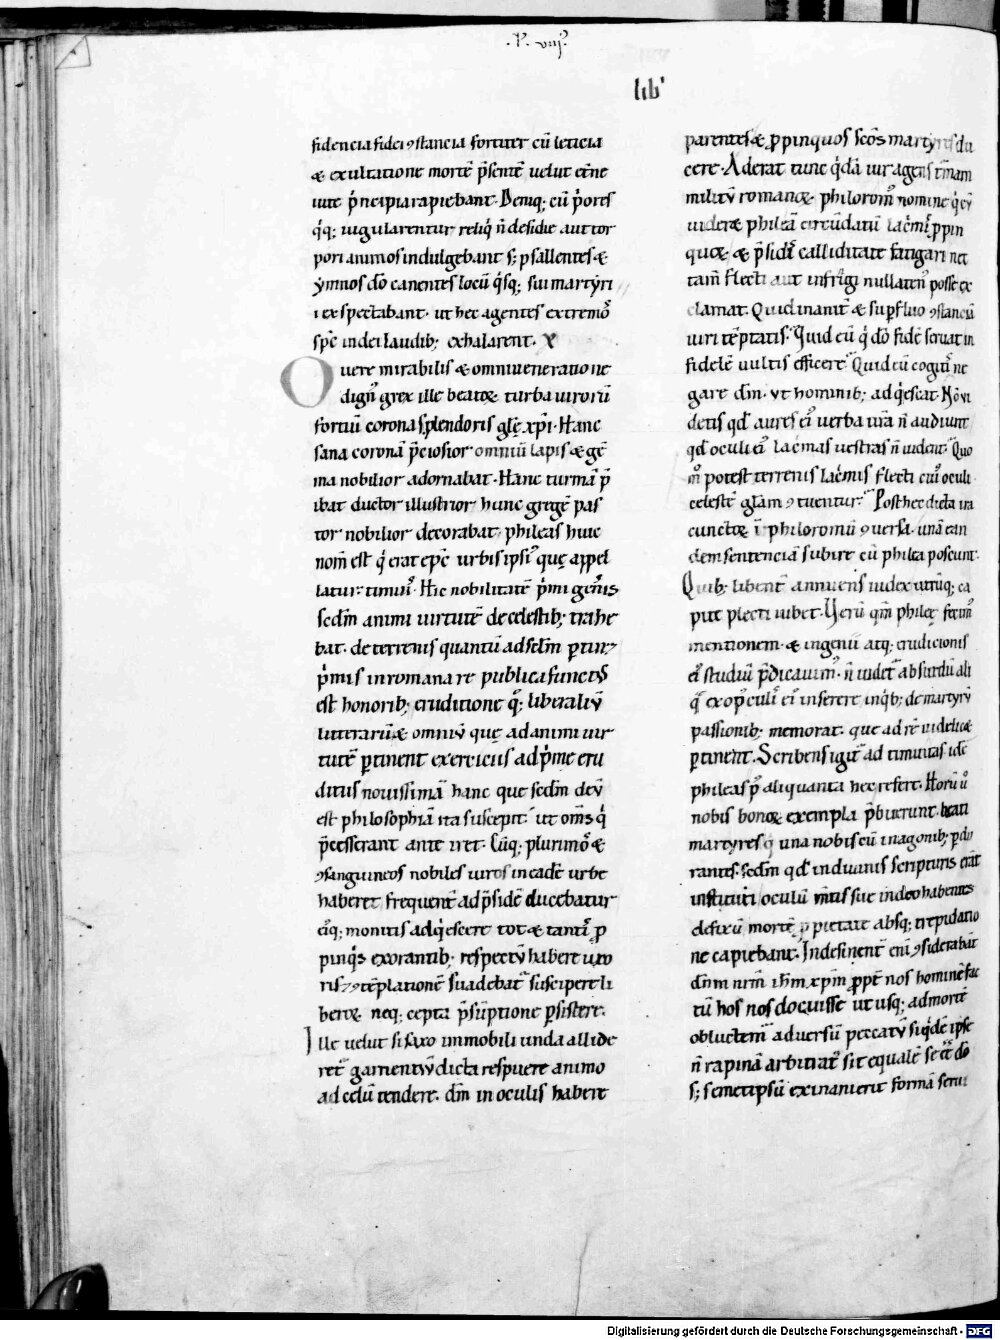 .P. viij.
lib'
fidencia fidei ꝯstancia fortiter cū leticia
& exultatione mortē p̄sentē uelut et̄ne
uite p̄ncipia rapiebant. Deniq; cū p̄ores
q̇q; iugularentur reliq̇ n̄ desidie aut tor
pori animos indulgebant s; psallentes &
ẏmnos dō canentes locū q̇sq; sui martẏri
i exspectabant. ut hec agentes extremos
sp̄c in dei laudib; exhalarent. X
O uere mirabilis & omni ueneratione
dignꝰ grex ille beatoꝝ turba uirorū
fortiū corona splendoris glę xp̄i. Hanc
sana coronā p̄ciosior omniū lapis & gē
ma nobilior adornabat. Hanc turmā p̄
ibat ductor illustrior hunc gregē pas
tor nobilior decorabat. phileas huic
nom̄ est q̇ erat ep̄c urbis ipsiꝰ quę appel
latur timuiˢ. Hic nobilitatē p̄mi gen̄is
sedm̄ animi uirtutē de celestib; trahe
bat. de terrenis quantū ad sedm̄ ꝑtin&
p̄mis in romana re publica functꝰ
est honorib; eruditione q̇; liberaliū
litterarū & omniū quę ad animi uir
tutē ꝑtinent exerciciis adp̄me eru
ditus nouissimā hanc que sedm̄ deū
est philosophiā ita suscepit. ut om̄s q̇
p̄cesserant ante iret. Cūq; plurimos &
ꝯsanguineos nobiles uiros in eadē urbe
haberet frequent̄ ad p̄sidē ducebatur
eiq; monitis adq̇escere tot & tantis ꝓ
pinq̇s exorantib; respectū habere uxo
ris & ꝯtēplationē suadebat̄ suscipere li
beroꝝ neq; cepta p̄sūptione ꝑsistere.
Ille uelut si saxo immobili unda allide
ret̄ garrientiū dicta respuere animo
ad celū tendere. dm̄ in oculis habere
parentes & ꝓpinquos scōs martẏres du
cere. Aderat tunc q̇dā uir agens t̄mam
militū romanoꝝ philoromꝰ nomine q̇ cū
uideret phileā circūdatū lac̄mis ꝓpin
quoꝝ & p̄sidis calliditate fatigari nec
tam̄ flecti aut infringi nullatenꝰ posse ex
clamat. Quid inanit̄ & suꝑfluo ꝯstanciā
uiri tēptatis. Quid eū q̇ dō fidē seruat in
fidelē uultis efficere. Quid eū cogitis ne
gare dm̄. vt hominib; adq̇escat. Non ui
detis qd̄ aures eiꝰ uerba ur̄a n̄ audiunt
qd̄ oculi eiꝰ lac̄mas uestras n̄ uident. Quo
m̊ potest terrenis lac̄mis flecti cuiꝰ oculi
celestē gl̄am ꝯtuentur. Post hec dicta ira
cunctoꝝ ī philoromū ꝯuersa. unā ean
dem sentenciā subire cū philea poscunt.
Quib; libent̄ annuens iudex utrūq; ca
pite plecti iubet. Uerū qm̄ philee fecimꝰ
mentionem & ingenii atq; erudicionis
eiꝰ studiū p̄dicauimꝰ. n̄ uidet̄ absurdū ali
q̄ ex opusculis eiꝰ inserere inq̇b; de martẏrū
passionib; memorat. que ad rē uidelic&
ꝑtinent. Scribens igit̄ ad timuitas idē
phileas pꝰ aliquanta hec refert. Horū ū
nobis bonoꝝ exempla p̄buerunt beati
martyres q̇ una nobiscū in agonib; ꝑdu
rantes. sedm̄ qd̄ in diuinis scripturis erāt
instituti oculū mentis sue in deo habentes
defixū mortē ꝓ pietate absq; trepidatio
ne capiebant. Indesinent̄ eni ꝯsiderabāt
dnm̄ nrm̄ ih̄m xpm̄ ꝓpt̄ nos hominē fac
tū hos nos docuisse ut usq; ad mortē
obluctem̄ aduersū peccatū siq̇dē ipse
n̄ rapinā arbitratꝰ sit equalē se ēē dō
s; semetipsū exinanierit formā serui
Digitalisierung gefördert durch die Deutsche Forschungsgemeinschaft - DFG